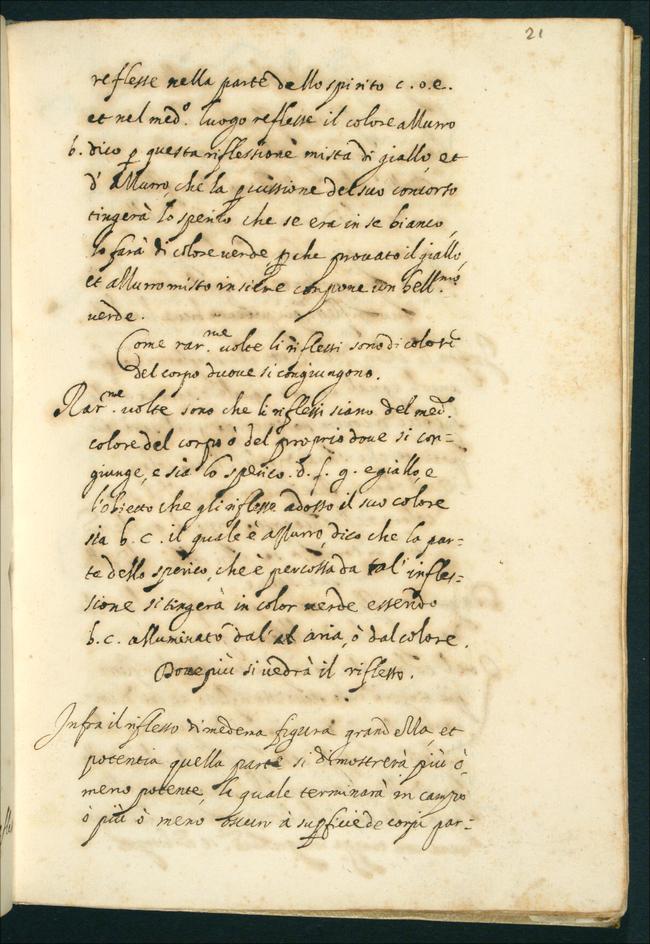 21
reflesse nella parte dello spirito c.o.e.
et nel med.º luogo reflesse il colore assurro
b. dico p questa riflessione mista di giallo, et
d'assurro, che la pcussione del suo concorso
tingerà lo sperico che se era in se bianco,
lo farà di colore uerde pche prouato il giallo,
et assurro misto insieme conpone un bell.mo
uerde.
Come rar.me uolte li riflessi sono di colore
del corpo doue si congiungono.
Rar.me uolte sono che li riflessi siano del med.º
colore del corpo ò del proprio doue si con=
giunge, e sia lo sperico. d. f. g. e giallo, e
l'obietto che gli riflesse adosso il suo colore
sia b. c. il quale è assurro, dico che la par=
te dello sperico, che è percossa da tal' infles=
sione si tingerà in color uerde essendo
b. c. alluminato dal' aria, ò dal colore.
Doue più si uedrà il riflesso.
Infra il riflesso di medema figura grandezza, et
potentia quella parte si dimostrerà più ò
meno potente, la quale terminarà in campo
ò più ò meno oscuro à supficie de corpi par=